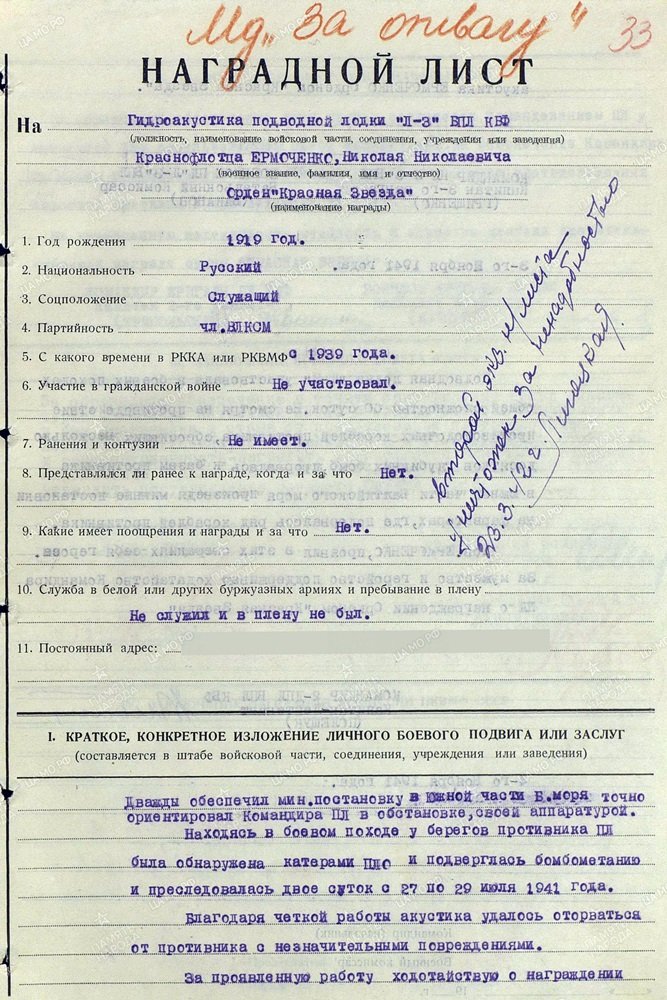 Мд „За отвагу"
33
НАГРАДНОЙ ЛИСТ
На Гидроакустика подводной лодки "Л-3" БПЛ КБФ
(должность, наименование войсковой части, соединения, учреждения или заведения)
Краснофлотца ЕРМОЧЕНКО, Николая Николаевича
(военное звание, фамилия, имя и отчество)
Орден"Красная Звезда"
(наименование награды)
1. Год рождения 1919 год.
2. Национальность Русский
3. Соцположение Служащий
4. Партийность чл.ВЛКСМ
5. С какого времени в РККА или РКВМФ с 1939 года.
6. Участие в гражданской войне Не участвовал.
7. Ранения и контузии Не имеет.
8. Представлялся ли ранее к награде, когда и за что Нет.
9. Какие имеет поощрения и награды и за что Нет.
10. Служба в белой или других буржуазных армиях и пребывание в плену
Не служил и в плену не был.
11. Постоянный адрес:
второй экз. н/листа
уничтожен за ненадобностью
23.3.42 г.
I. КРАТКОЕ, КОНКРЕТНОЕ ИЗЛОЖЕНИЕ ЛИЧНОГО БОЕВОГО ПОДВИГА ИЛИ ЗАСЛУГ
(составляется в штабе войсковой части, соединения, учреждения или заведения)
Дважды обеспечил мин.постановку в Южной части Б.моря точно
ориентировал Командира ПЛ в обстановке,своей аппаратурой.
Находясь в боевом походе у берегов противника ПЛ
была обнаружена катерами ПЛО и подверглась бомбометанию
и преследовалась двое суток с 27 по 29 июля 1941 года.
Благодаря четкой работы акустика удалось оторваться
от противника с незначительными повреждениями.
За проявленную работу ходотайствую о награждении